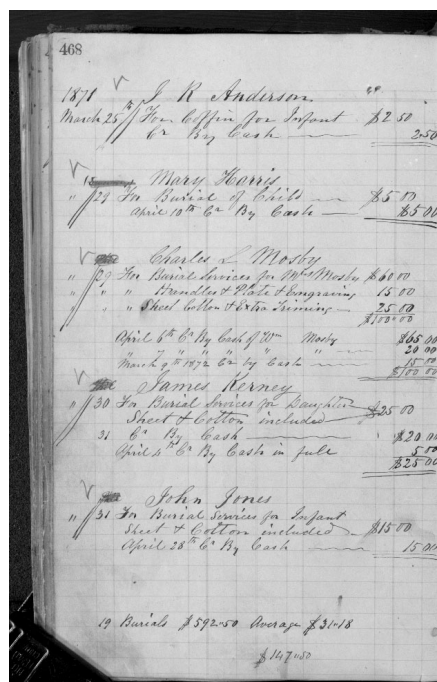 468
1871 J R Anderson
March 25th For Coffin for Infant $2 50
Cr By Cash 2 50
15 Mary Harris
" 29 For Burial of Child $5 00
April 10th Cr By Cash $5 00
Charles L Mosby
" 29 For Burial Services for Mrs Mosby $60 00
" " " Handles & Plate & Engraving 15 00
" " " Sheet Cotton & Extra Triming 25 00
$100 00
April 6th Cr By Cash of Wm Mosby $65 00
" " " " " " 20 00
March 9th 1872 Cr by Cash 15 00
$100 00
James Kerney
" 30 For Burial Services for Daughter
Sheet & Cotton included $25 00
31 Cr By Cash $20 00
April 4th Cr By Cash in full 5 00
$25 00
John Jones
" 31 For Burial Services for Infant
Sheet & Cotton included $15 00
April 28th Cr By Cash 15 00
19 Burials $592"50 Average $31"18
$147"50